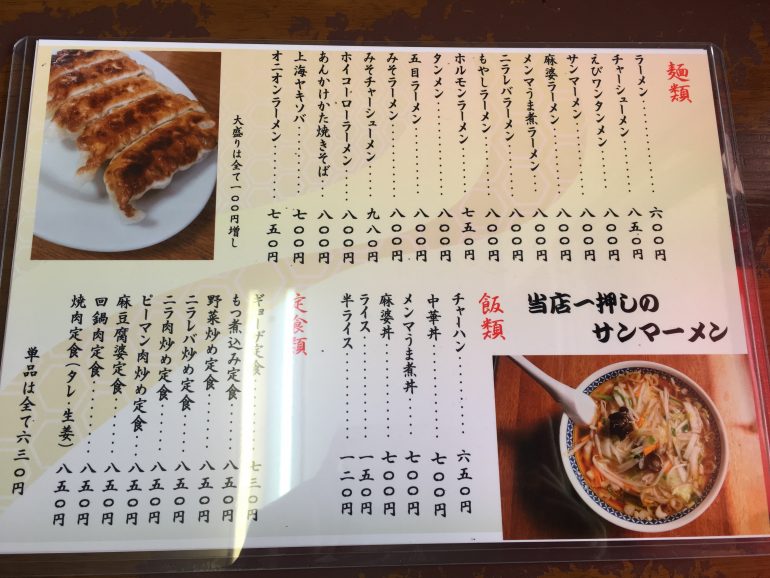 麺類
ラーメン……六〇〇円
チャーシューメン……八五〇円
えびワンタンメン……八〇〇円
サンマーメン……八〇〇円
麻婆ラーメン……八〇〇円
メンマうま煮ラーメン……八〇〇円
ニラレバラーメン……八〇〇円
もやしラーメン……八〇〇円
ホルモンラーメン……七五〇円
タンメン……八〇〇円
五目ラーメン……八〇〇円
みそラーメン……八〇〇円
みそチャーシューメン……九八〇円
ホイコーローラーメン……八〇〇円
あんかけかた焼きそば……八〇〇円
上海ヤキソバ……七〇〇円
オニオンラーメン……七五〇円
大盛りは全て一〇〇円増し
当店一押しの
サンマーメン
飯類
チャーハン……六五〇円
中華丼……七〇〇円
メンマうま煮丼……七〇〇円
麻婆丼……七〇〇円
ライス……一五〇円
半ライス……一二〇円
定食類
ギョーザ定食……七三〇円
もつ煮込み定食……八五〇円
野菜炒め定食……八五〇円
ニラレバ炒め定食……八五〇円
ニラ肉炒め定食……八五〇円
ピーマン肉炒め定食……八五〇円
麻豆腐婆定食……八五〇円
回鍋肉定食……八五〇円
焼肉定食(タレ・生姜)……八五〇円
単品は全て六三〇円